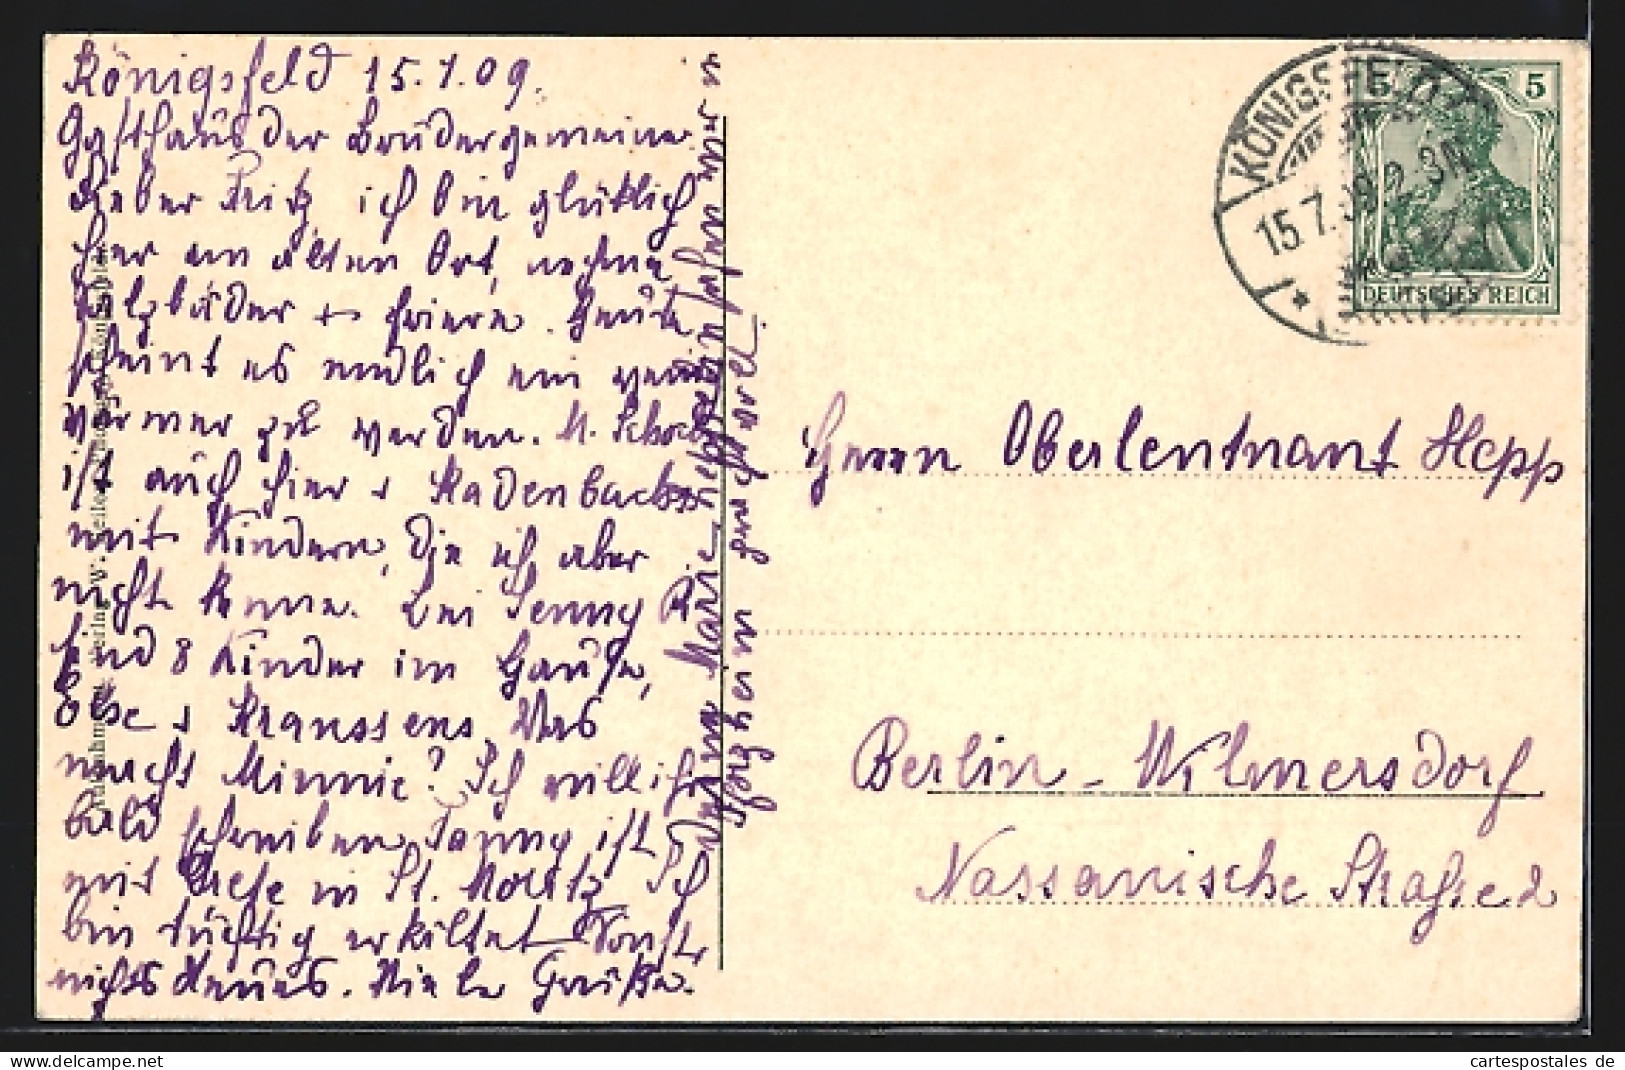 Königsfeld 15.7.09.
Gasthaus der Brüdergemeine.
Lieber Fritz, ich bin glücklich
hier am alten Ort, nehme
Salzbäder + friere. Heute
scheint es endlich ein wenig
wärmer zu werden. M. Schob
ist auch hier + Kadenbachs
mit Kindern, die ich aber
nicht kenne. Bei Jenny R.
sind 8 Kinder im Hause,
Else + Kraussens. Was
macht Minnie? Ich will ihr
bald schreiben. Fanny ist
mit Grete in St. Moritz. Ich
bin tüchtig erkältet. Sonst
nichts Neues. Viele Grüße.
Deine Marie
gewandert
KÖNIGSFELD
15.7.09. 2-3N.
5 5
DEUTSCHES REICH
Herrn Oberleutnant Hepp
Berlin-Wilmersdorf
Nassauische Straße 2
www.cartespostales.de
cartespostales de